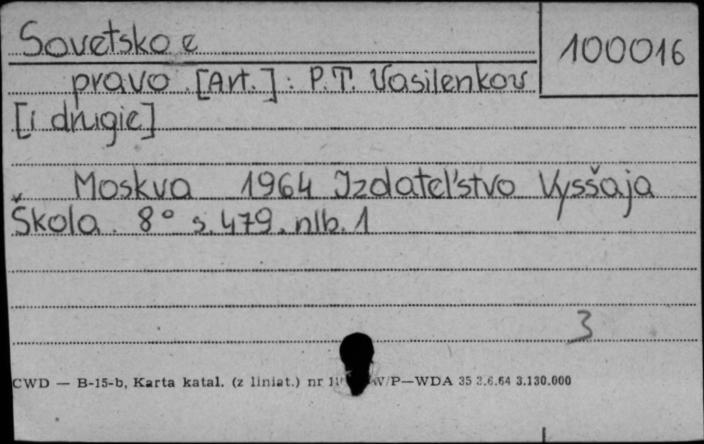 Sovetskoe
100016
pravo. [Art.]: P.T. Vasilenkov
[i drugie]
Moskva 1964 Izdatel'stvo Vysšaja
Škola. 8° s. 479. nlb. 1
3
CWD — B-15-b, Karta katal. (z liniat.) nr W/P—WDA 35 3.6.64 3.130.000